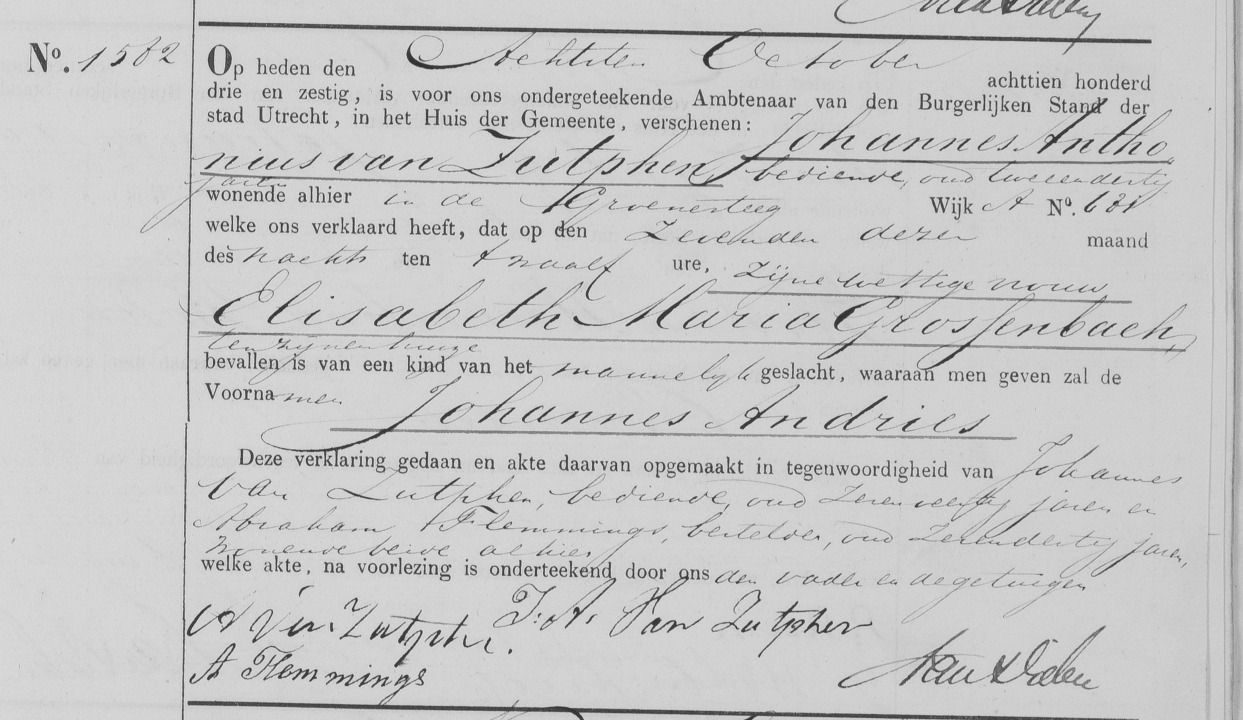 No. 1582
Op heden den Achtsten October achttien honderd
drie en zestig, is voor ons ondergeteekende Ambtenaar van den Burgerlijken Stand der
stad Utrecht, in het Huis der Gemeente, verschenen: Johannes Antho
nius van Zutphen, bediende, oud tweeendertig
jaren
wonende alhier in de Groenesteeg Wijk A No.
welke ons verklaard heeft, dat op den Zevenden dezer maand
des nachts ten twaalf ure, zijne wettige vrouw
Elisabeth Maria Grossenbach,
ten zijnent huize
bevallen is van een kind van het mannelijk geslacht, waaraan men geven zal de
Voornamen Johannes Andries
Deze verklaring gedaan en akte daarvan opgemaakt in tegenwoordigheid van Johannes
van Zutphen, bediende, oud jaren en
Abraham Flemmings, besteller, oud Zevendertig jaren,
wonende beide alhier
welke akte, na voorlezing is onderteekend door ons den vader en de getuigen
van Zutphen. J: A. Van Zutphen
A Flemmings